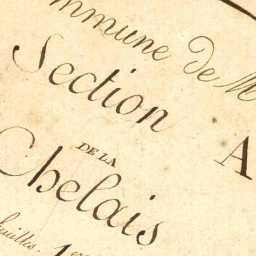 mmune de M
Section A
DE LA
Chelais
uilles.